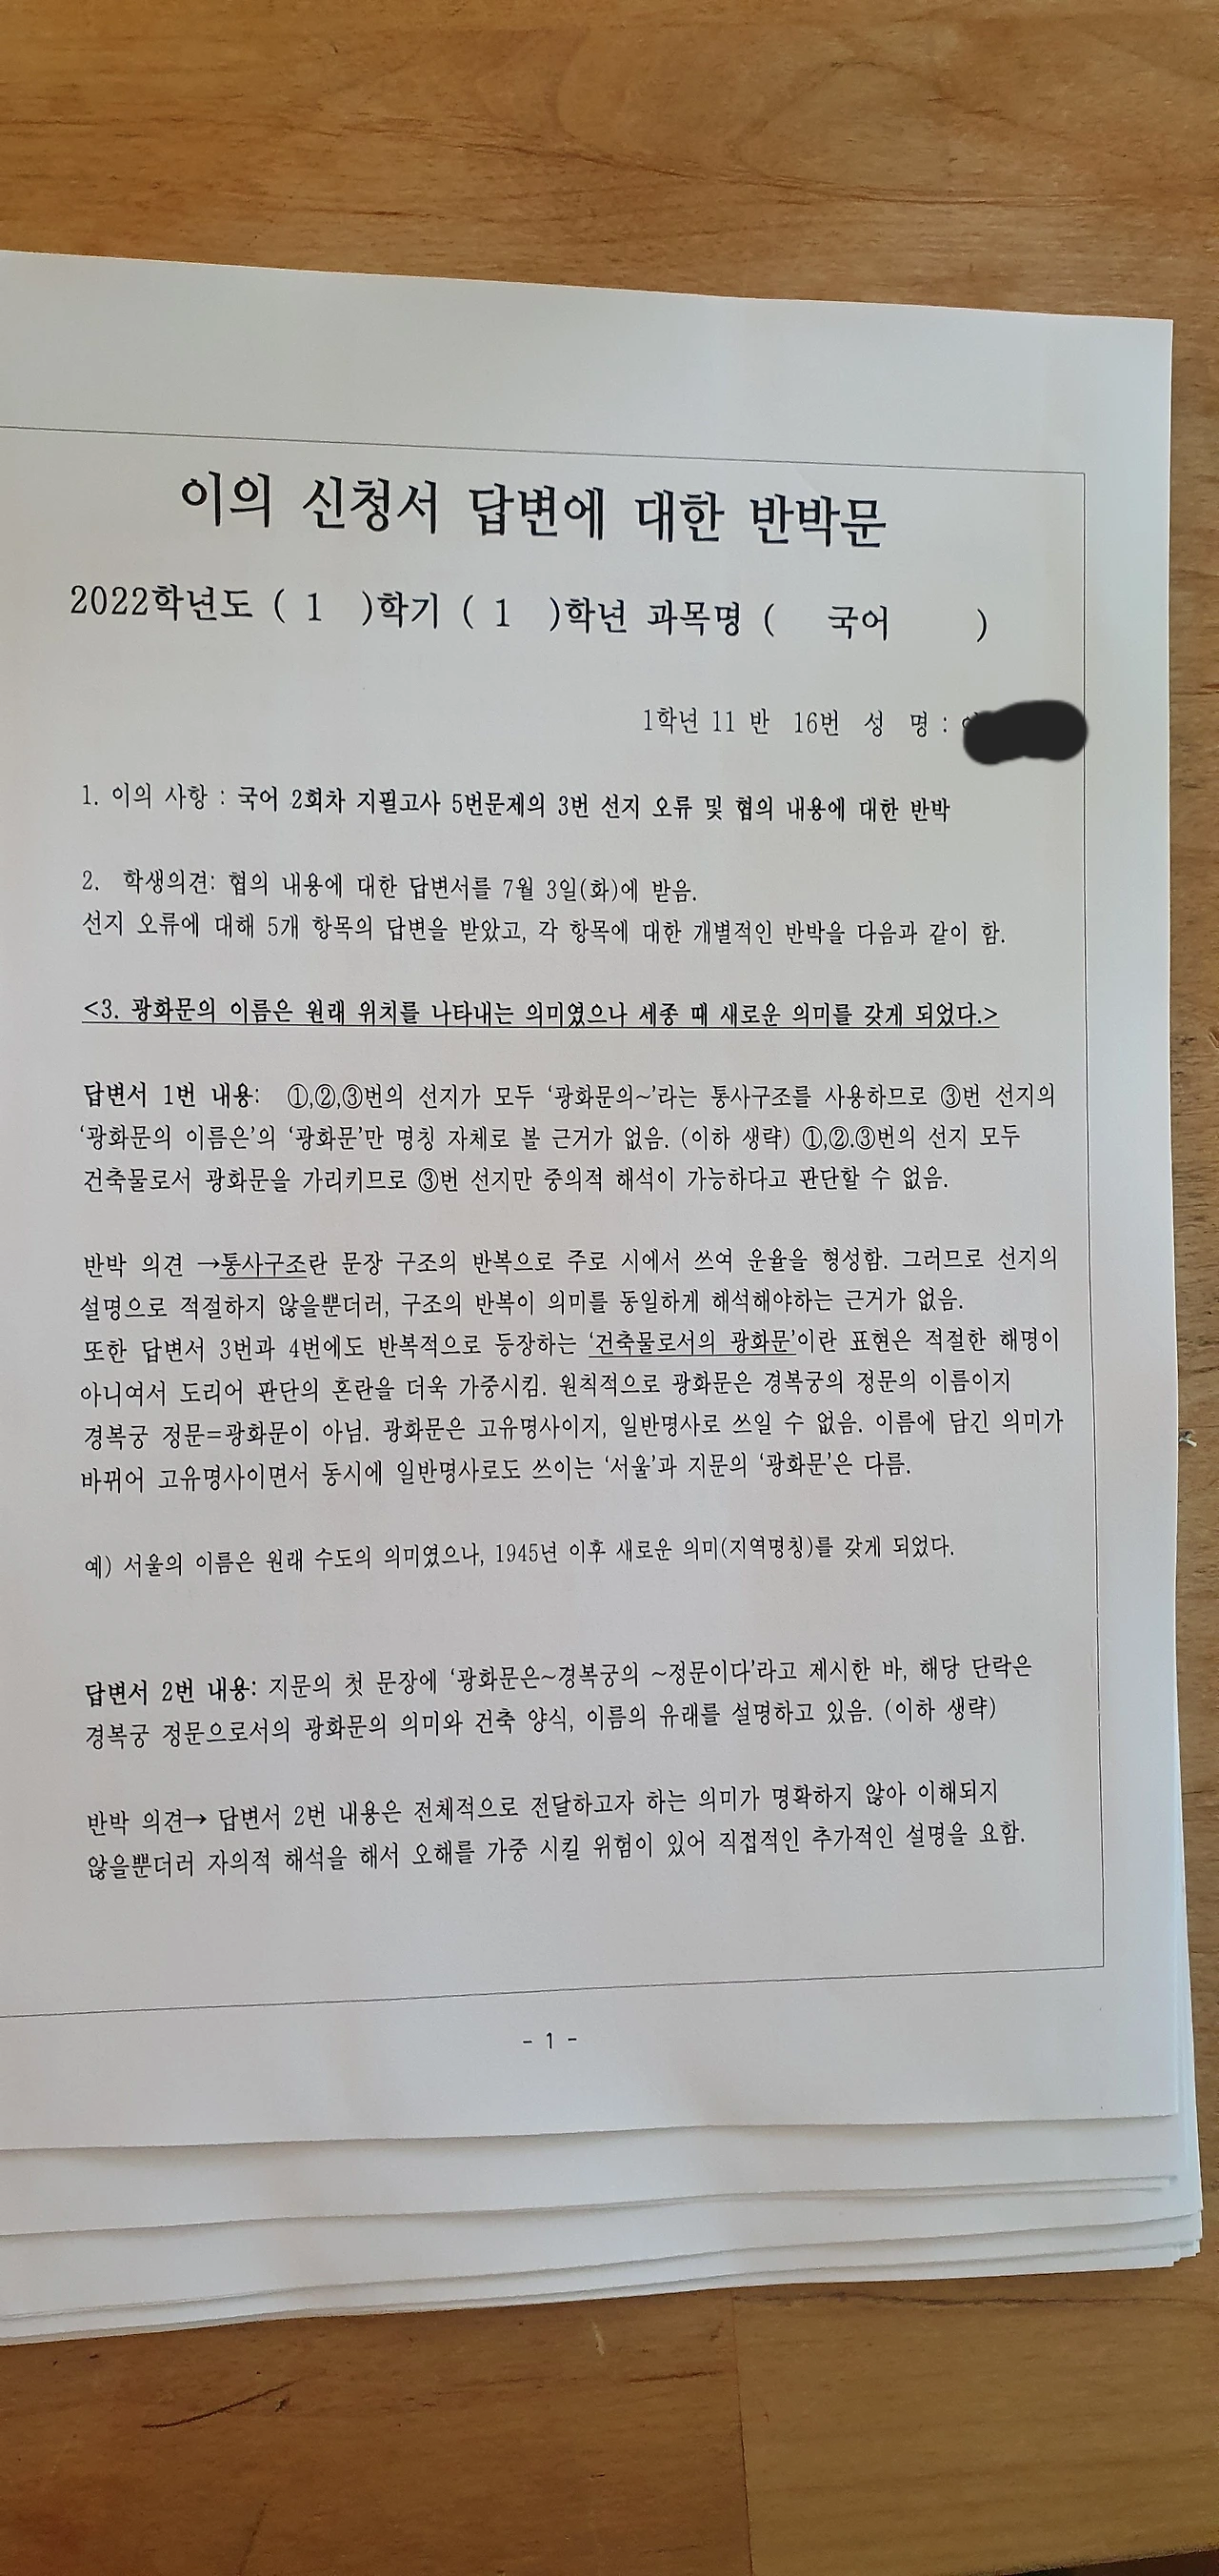 이의 신청서 답변에 대한 반박문
2022학년도 ( 1 )학기 ( 1 )학년 과목명 ( 국어 )
1학년 11 반 16번 성 명 :
1. 이의 사항 : 국어 2회차 지필고사 5번문제의 3번 선지 오류 및 협의 내용에 대한 반박
2. 학생의견: 협의 내용에 대한 답변서를 7월 3일(화)에 받음.
선지 오류에 대해 5개 항목의 답변을 받았고, 각 항목에 대한 개별적인 반박을 다음과 같이 함.
<3. 광화문의 이름은 원래 위치를 나타내는 의미였으나 세종 때 새로운 의미를 갖게 되었다.>
답변서 1번 내용: ①,②,③번의 선지가 모두 ‘광화문의~’라는 통사구조를 사용하므로 ③번 선지의
‘광화문의 이름은’의 ‘광화문’만 명칭 자체로 볼 근거가 없음. (이하 생략) ①,②.③번의 선지 모두
건축물로서 광화문을 가리키므로 ③번 선지만 중의적 해석이 가능하다고 판단할 수 없음.
반박 의견 →통사구조란 문장 구조의 반복으로 주로 시에서 쓰여 운율을 형성함. 그러므로 선지의
설명으로 적절하지 않을뿐더러, 구조의 반복이 의미를 동일하게 해석해야하는 근거가 없음.
또한 답변서 3번과 4번에도 반복적으로 등장하는 ‘건축물로서의 광화문’이란 표현은 적절한 해명이
아니여서 도리어 판단의 혼란을 더욱 가중시킴. 원칙적으로 광화문은 경복궁의 정문의 이름이지
경복궁 정문=광화문이 아님. 광화문은 고유명사이지, 일반명사로 쓰일 수 없음. 이름에 담긴 의미가
바뀌어 고유명사이면서 동시에 일반명사로도 쓰이는 ‘서울’과 지문의 ‘광화문’은 다름.
예) 서울의 이름은 원래 수도의 의미였으나, 1945년 이후 새로운 의미(지역명칭)를 갖게 되었다.
답변서 2번 내용: 지문의 첫 문장에 ‘광화문은~경복궁의 ~정문이다’라고 제시한 바, 해당 단락은
경복궁 정문으로서의 광화문의 의미와 건축 양식, 이름의 유래를 설명하고 있음. (이하 생략)
반박 의견→ 답변서 2번 내용은 전체적으로 전달하고자 하는 의미가 명확하지 않아 이해되지
않을뿐더러 자의적 해석을 해서 오해를 가중 시킬 위험이 있어 직접적인 추가적인 설명을 요함.
- 1 -